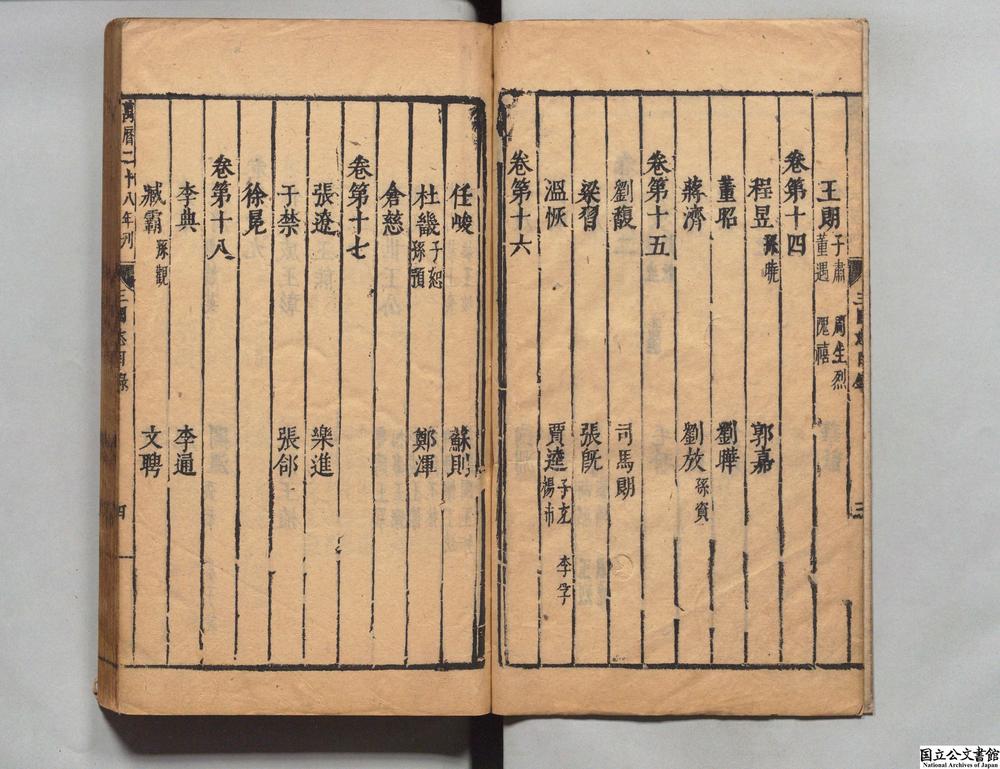 王朗 子肅 董遇 周生烈 隗禧
卷第十四
程昱 孫曉 郭嘉
董昭 劉曄
蔣濟 劉放 孫資
卷第十五
劉馥 司馬朗
梁習 張旣
溫恢 賈逵 子充 楊沛 李孚
卷第十六
三國志目錄 三
任峻 蘇則
杜畿 子恕 孫預 鄭渾
倉慈
卷第十七
張遼 樂進
于禁 張郃
徐晃
卷第十八
李典 李通
臧霸 孫觀 文聘
萬曆二十八年刊 三國志目錄 四
国立公文書館
National Archives of Japan